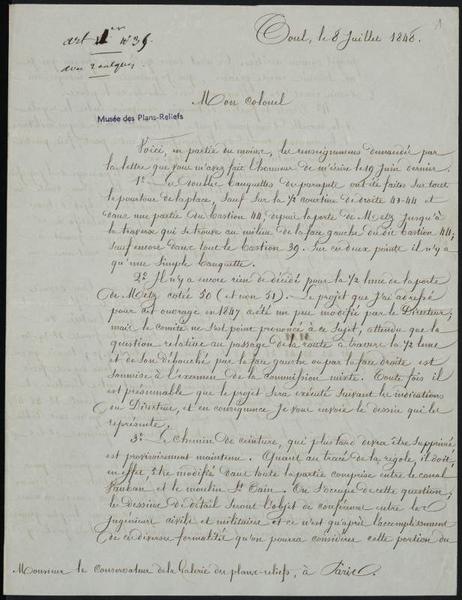 art 1er n° 39
avec 2 calques
Toul, le 8 Juillet 1848.
1
Mon colonel
Musée des Plans-Reliefs
Voici, en partie du moins, les renseignemens demandés par
la lettre que vous m'avez fait l'honneur de m'écrire le 19 Juin dernier.
1° De doubles banquettes de parapets ont été faites sur tout
le pourtour de la place, sauf sur la 1/2 courtine de droite 41-44 et
dans une partie du bastion 44, depuis la porte de Metz jusqu'à
la traverse qui se trouve au milieu de la face gauche du dit bastion 44,
sauf encore dans tout le bastion 39. Sur ces deux points il n'y a
qu'une simple banquette.
2° Il n'y a encore rien de décidé pour la 1/2 lune de la porte
de Metz cotée 50 (et non 51). Le projet que j'ai adressé
pour cet ouvrage en 1847 a été un peu modifié par le Directeur;
mais le comité ne s'est point prononcé à ce sujet, attendu que la
question relative au passage de la route à travers la 1/2 lune
et de son débouché par la face gauche ou par la face droite est
soumise à l'examen de la commission mixte. Toute fois il
est présumable que le projet sera exécuté suivant les indications
du Directeur, et en conséquence je vous envoie le dessin qui les
représente.
3° Le chemin de ceinture, qui plus tard devra être supprimé
est provisoirement maintenu. Quant au tracé de la rigole, il doit
en effet être modifié dans toute la partie comprise entre le canal
Vauban et le moulin St Cain. On s'occupe de cette question;
les dessins de détail seront l'objet de conférences entre les
Ingénieurs civils et militaires et ce n'est qu'après l'accomplissement
de ces diverses formalités qu'on pourra considérer cette portion du
Monsieur le conservateur de la Galerie des plans-reliefs, à Paris.